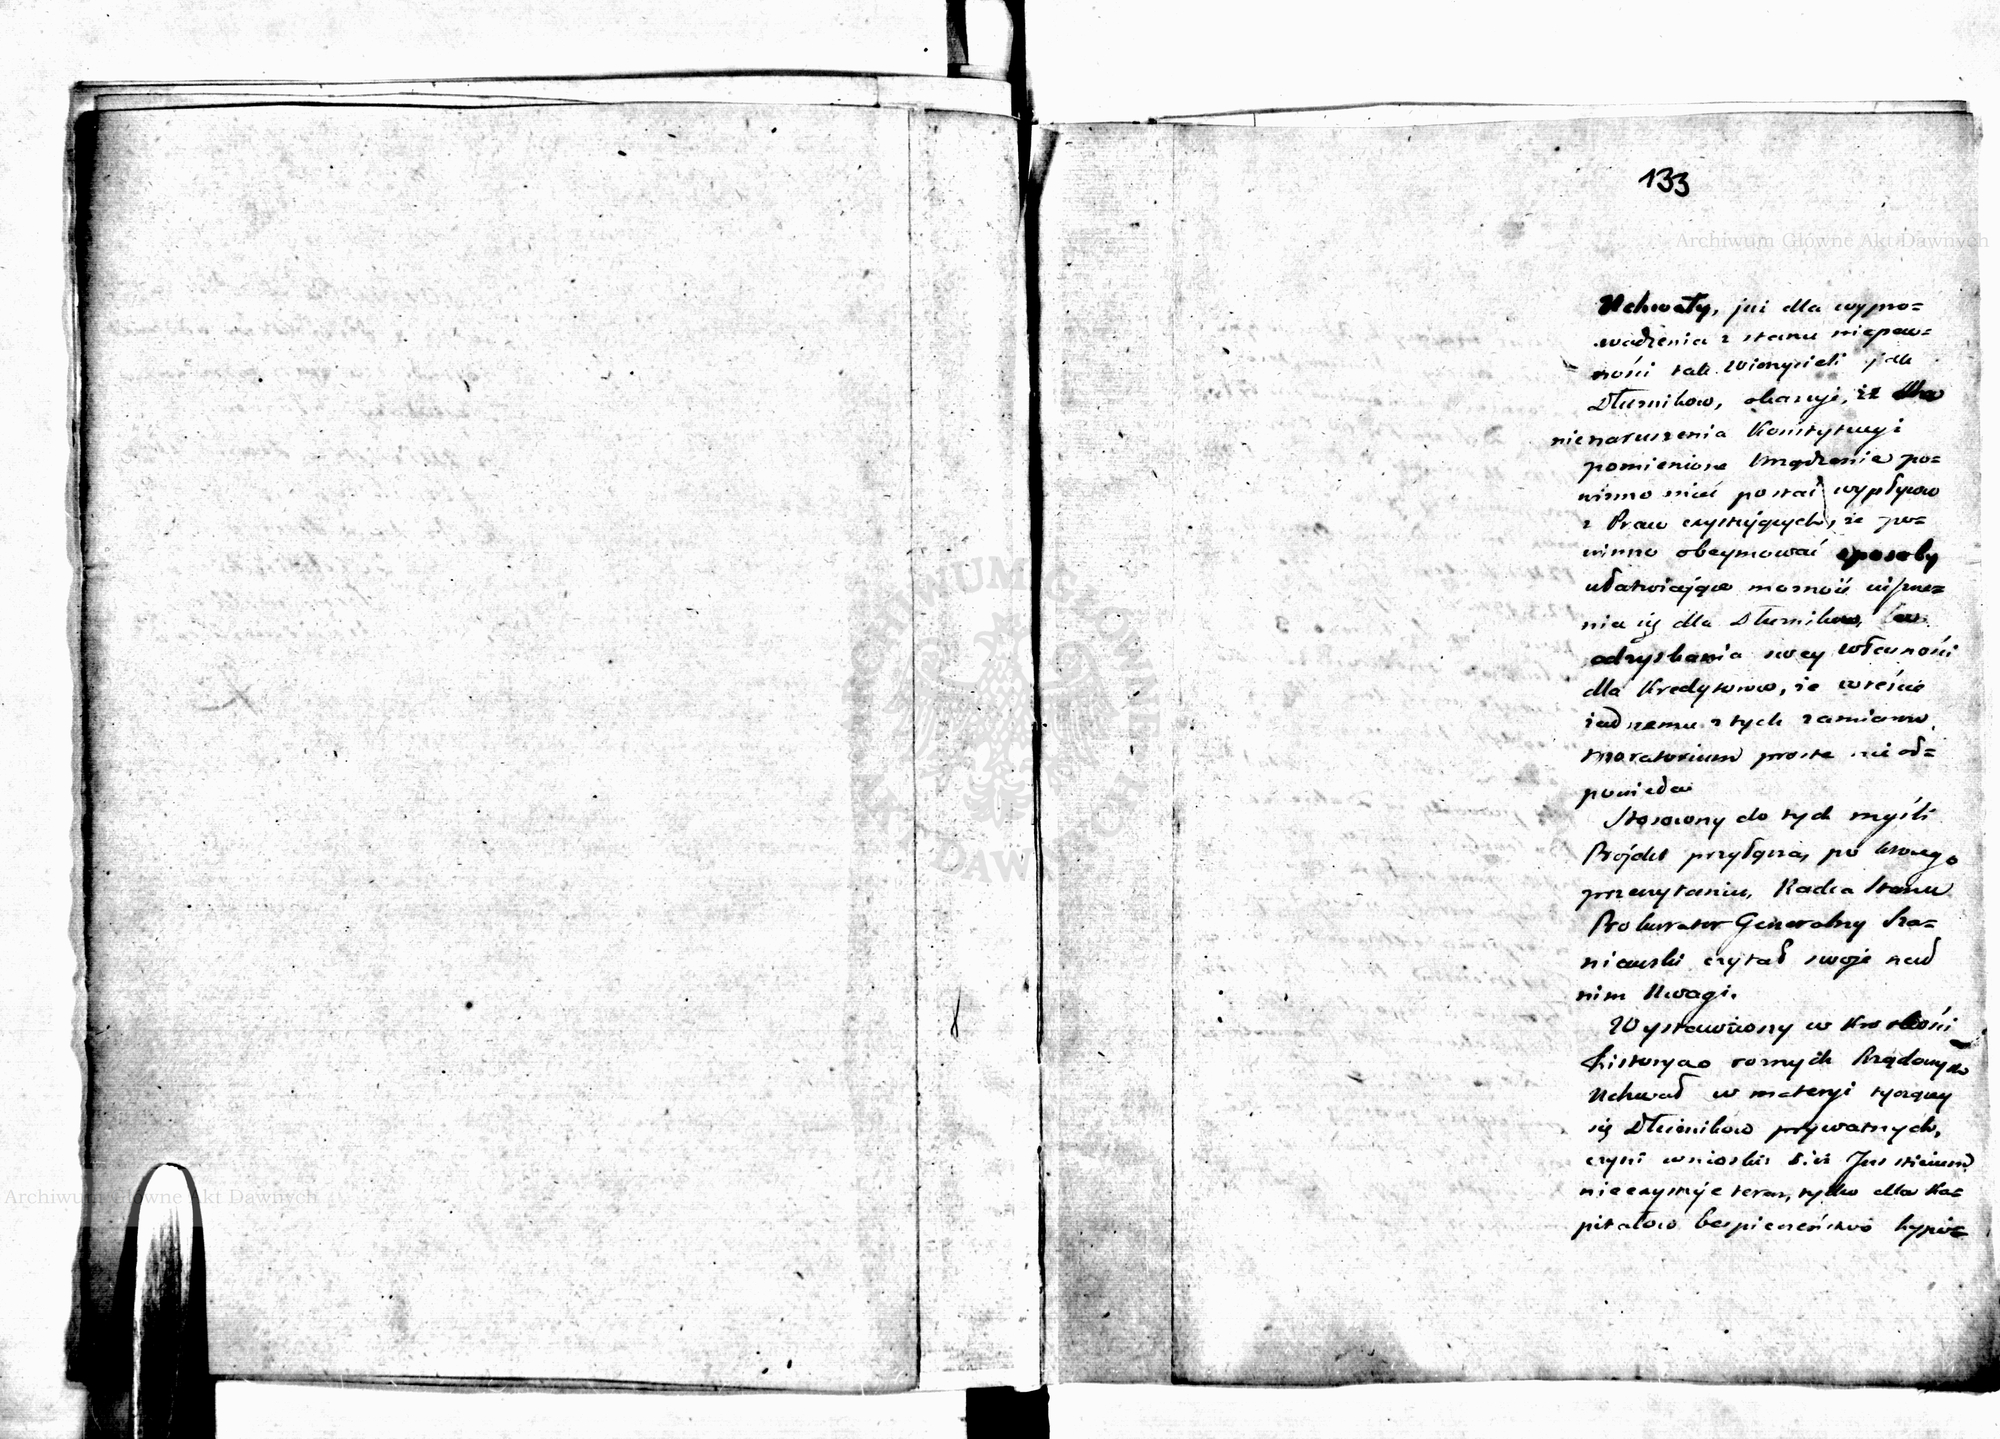 133
Archiwum Główne Akt Dawnych
Uchwały, już dla wypro=
wadzenia z stanu niepew=
ności tak Wierzycieli jak
Dłużników, okazuje, iż dla
nienaruszenia Konstytucyi
pomienione Urządzenie po=
winno mieć postać wypływu
z Praw exystujących, że po=
winno obeymować sposoby
ułatwiające możność uiszcze=
nia się dla Dłużników,
odzyskania swey własności
dla Kredytorów, że wreście
żadnemu z tych zamiarów
moratorium proste nie od=
powieda
Stosowny do tych myśli
Projekt przyłącza, po którego
przeczytaniu, Radca Stanu
Prokurator Generalny Sza=
niawski czytał swoje nad
nim Uwagi.
Wystawiony w krótkości
historyą rożnych Rządowych
Uchwał w materyi tyczącey
się Dłużników prywatnych,
czyni wniosek iż Justitium
nieexystuje teraz, tylko dla Ka=
pitałów bezpieczeństwo hypo=
ARCHIWUM GŁÓWNE
AKT DAWNYCH
Archiwum Główne Akt Dawnych